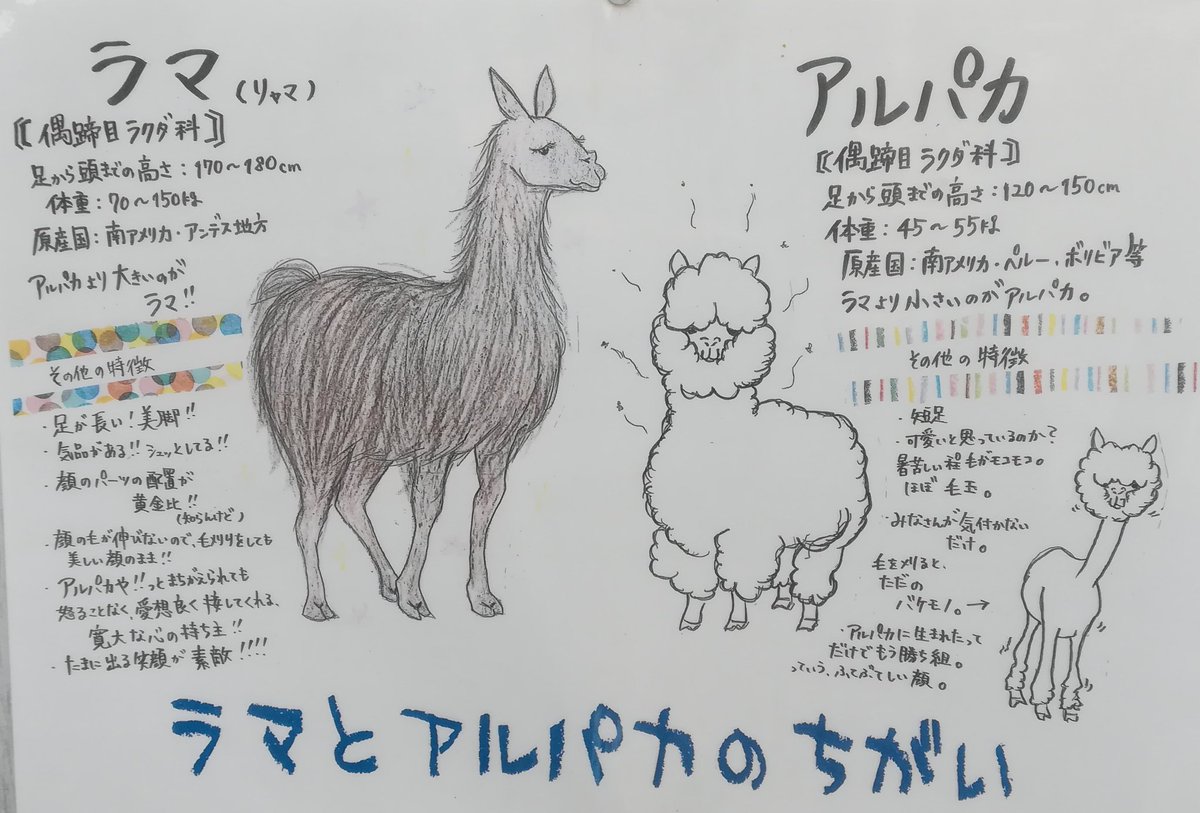 ラマ(リャマ)
〘偶蹄目ラクダ科〙
足から頭までの高さ:170〜180cm
体重:70〜150kg
原産国:南アメリカ・アンデス地方
アルパカより大きいのが
ラマ!!
その他の特徴
・足が長い!美脚!!
・気品がある!!シュッとしてる!!
・顔のパーツの配置が
黄金比!!
(知らんけど)
・顔の毛が伸びないので、毛刈りをしても
美しい顔のまま!!
・アルパカや!!っとまちがえられても
怒ることなく、愛想良く接してくれる、
寛大な心の持ち主!!
・たまに出る笑顔が素敵!!!!
アルパカ
〘偶蹄目ラクダ科〙
足から頭までの高さ:120〜150cm
体重:45〜55kg
原産国:南アメリカ・ペルー、ボリビア等
ラマより小さいのがアルパカ。
その他の特徴
・短足
・可愛いと思っているのか?
暑苦しい程毛がモコモコ。
ほぼ毛玉。
・みなさんが気付かない
だけ。
毛を刈ると、
ただの
バケモノ。→
・アルパカに生まれたって
だけでもう勝ち組。
っていう、ふてぶてしい顔。
ラマとアルパカのちがい